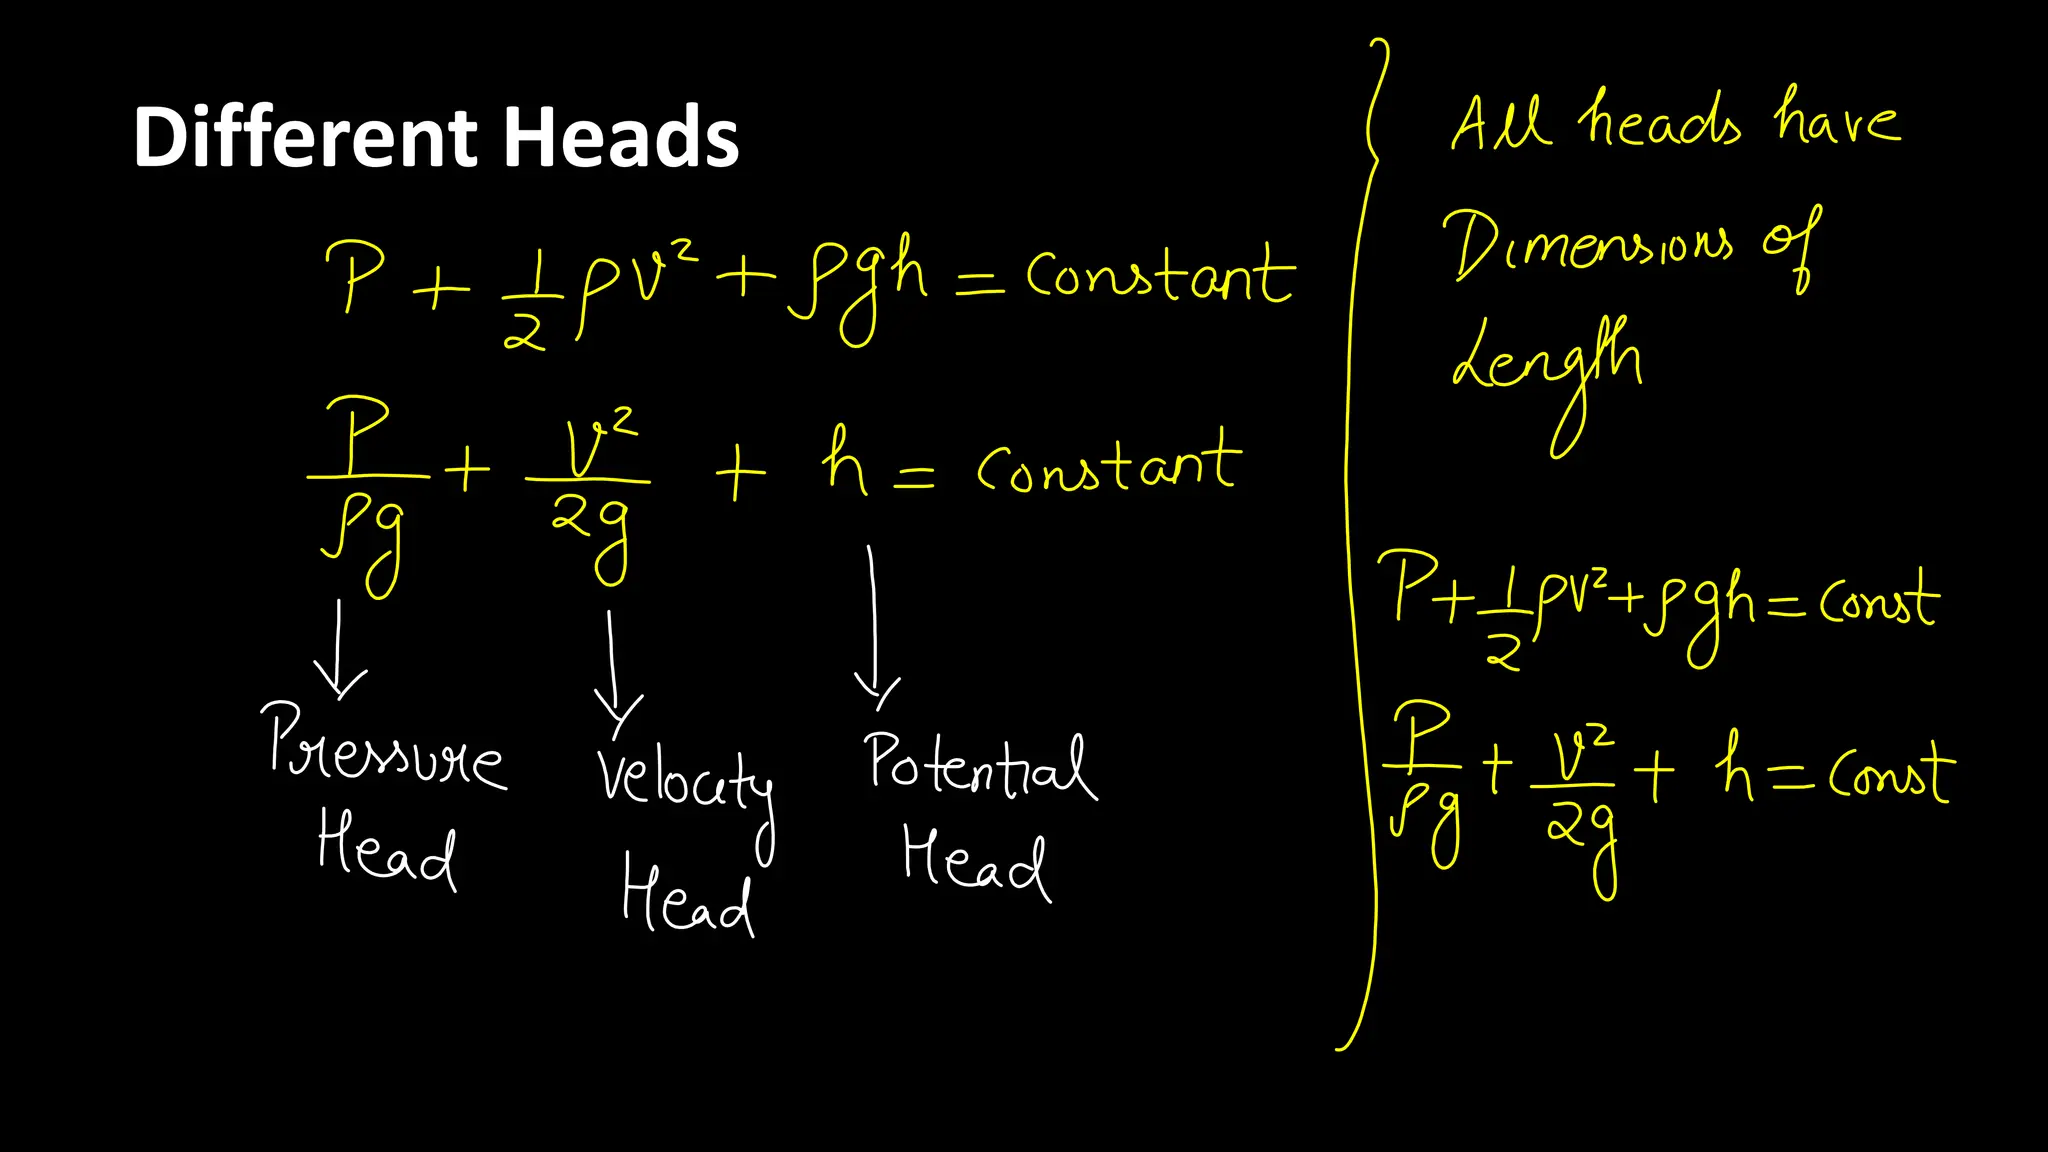 Different Heads
P + 1/2 ρv² + ρgh = constant
P/ρg + v²/2g + h = constant
Pressure Head
Velocity Head
Potential Head
All heads have
Dimensions of
Length
P + 1/2 ρv² + ρgh = const
P/ρg + v²/2g + h = const